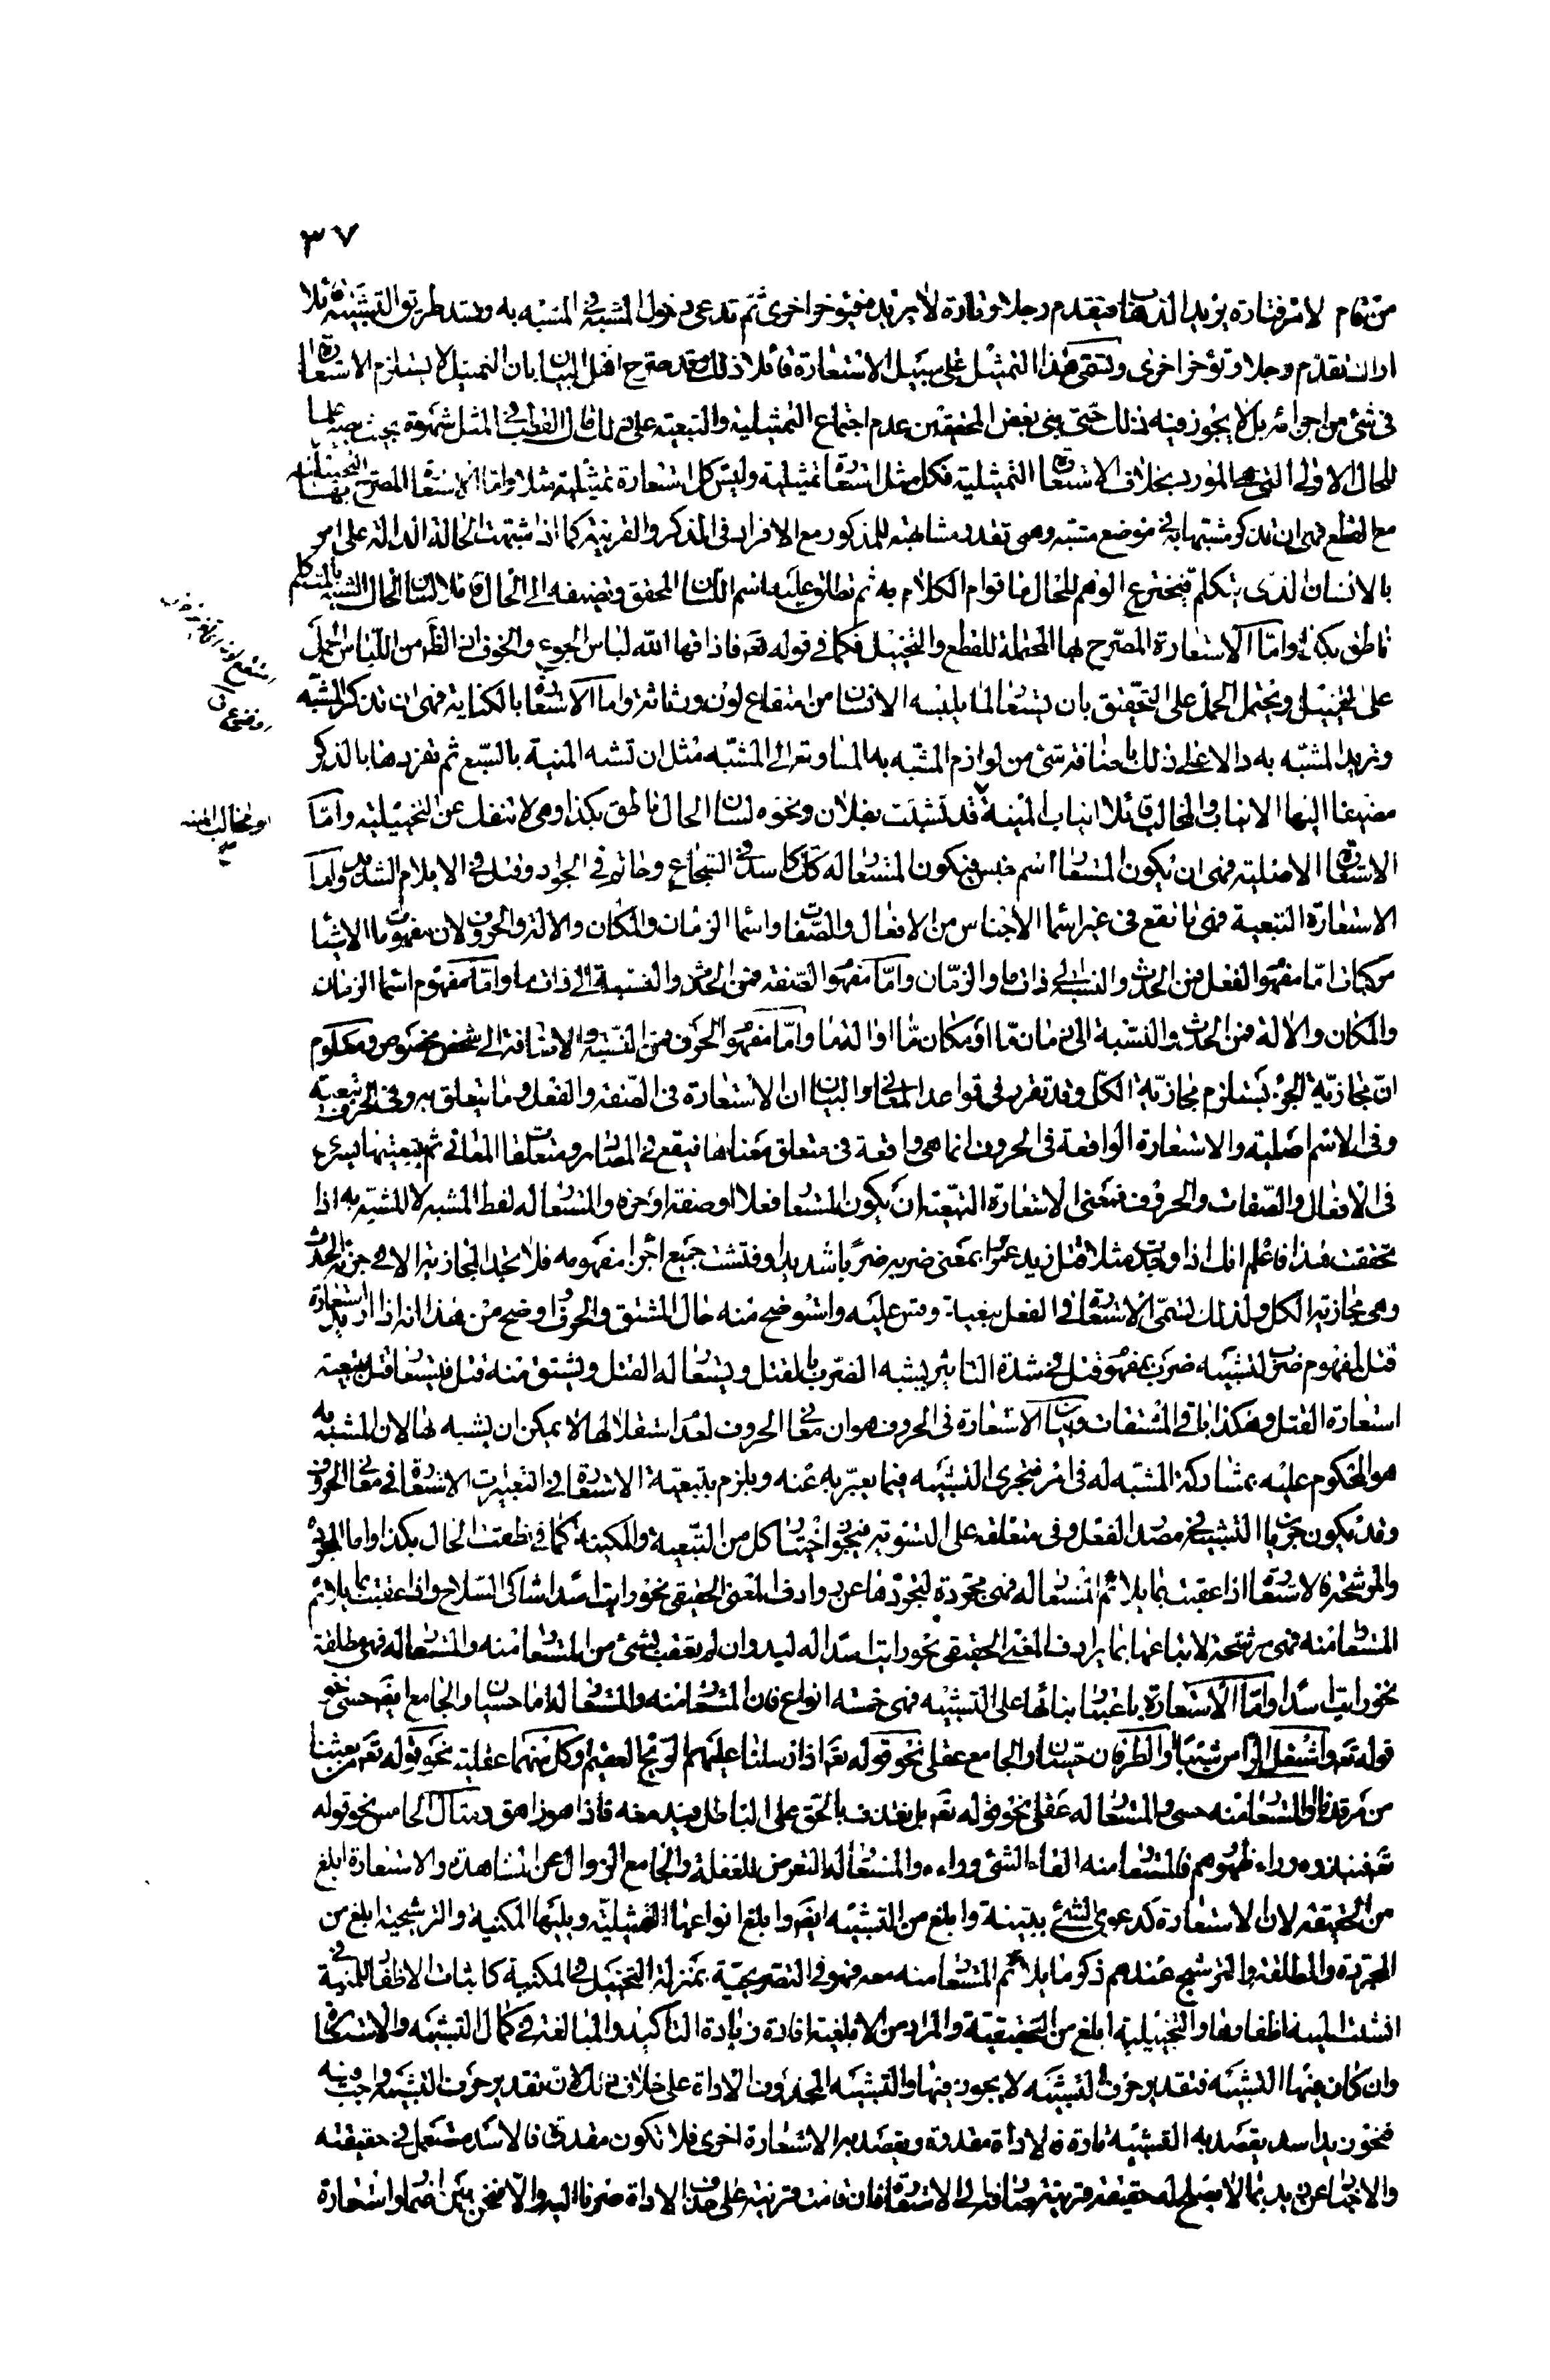 ٣٧
من قام لامر فتارة يريد الذهاب فيقدم رجلا وتارة لا يريد فيؤخر اخرى ثم تدعى دخول المشبه فى المشبه به وتسد طريق التشبيه قائلا
اراك تقدم رجلا وتؤخر اخرى وتسمى هذا التمثيل على سبيل الاستعارة قائلا ذلك وقد صرح اهل البيان بان التمثيل لا يستلزم الاستعارة
فى شئ من اجزائه بل لا يجوز فيه ذلك حتى بنى بعض المحققين عدم اجتماع التمثيلية والتبعية على ذلك قال القطب فى المثل شهرة بحيث يصير علما
للحال الاولى التى هى المورد بخلاف الاستعارة التمثيلية فكل مثل استعارة تمثيلية وليس كل استعارة تمثيلية مثلا واما الاستعارة المصرح بها التخييلية
مع القطع فهى ان تذكر مشبها به فى موضع مشبه وهمى تقدر مشابهته للمذكور مع الافراد فى الذكر والقرينة كما اذا شبهت الحالة الدالة على امر
بالانسان الذى يتكلم فيخترع الوهم للحال ما قوام الكلام به ثم تطلق عليه اسم اللسان المحقق وتضيفه الى الحال قائلا لسان الحال الشبيه بالمتكلم
ناطق بكذا واما الاستعارة المصرح بها المحتملة للقطع والتخييل فكما فى قوله تعه فاذاقها الله لباس الجوع والخوف اذ الظ من اللباس الحمل
على التخييل ويحتمل الحمل على التحقيق بان يستعار لما يلبسه الانسان من امتقاع لون ورثاثة واما الاستعارة بالكناية فهى ان تذكر المشبه
وتريد المشبه به دالا على ذلك باضافة شئ من لوازم المشبه به المساوية الى المشبه مثل ان تشبه المنية بالسبع ثم تفردها بالذكر
مضيفا اليها الانياب والمخالب قائلا انياب المنية قد نشبت بفلان ونحوه لسان الحال ناطق بكذا وهى لا تنفك عن التخييلية واما
الاستعارة الاصلية فهى ان يكون المستعار اسم جنس فيكون المستعار له كك كاسد فى الشجاع وحاتم فى الجواد وقتل فى الايلام الشديد واما
الاستعارة التبعية فهى ما تقع فى غير اسماء الاجناس من الافعال والصفات واسماء الزمان والمكان والالة والحروف لان مفهومات الاشياء
مركبات اما مفهوم الفعل فمن الحدث والنسبة الى ذات ما والزمان واما مفهوم الصفة فمن الحدث والنسبة الى ذات ما واما مفهوم اسماء الزمان
والمكان والالة فمن الحدث والنسبة الى زمان ما او مكان ما او الة ما واما مفهوم الحرف فمن النسبة والاضافة الى شخص مخصوص ومعلوم
ان مجازية الجزء يستلزم مجازية الكل وقد تقرر فى قواعد المعانى والبيان ان الاستعارة فى الصفة والفعل وما يتعلق به وفى الحرف تبعية
وفى الاسم اصلية والاستعارة الواقعة فى الحروف انما هى واقعة فى متعلق معناها فيقع فى المصادر ومتعلقات المعانى ثم بتبعيتها يسرى
فى الافعال والصفات والحروف فمعنى الاستعارة التبعية ان يكون المستعار فعلا او صفة او حرفا والمستعار له لفظ المشبه لا المشبه به اذا
تحققت هذا فاعلم انك اذا وجدت مثلا قتل زيد عمرا بمعنى ضربه ضربا شديدا وفتشت جميع اجزاء مفهومه فلا تجد المجازية الا فى جزئه الحدث
وهى مجازية الكل ولذلك تسمى الاستعارة فى الفعل تبعية وقس عليه واستوضح منه حال المشتق والحرف اوضح من هذا انه اذا اريد استعارة
قتل لمفهوم ضرب لتشبيه ضرب بمفهوم قتل فى شدة التاثير يشبه الضرب بالقتل ويستعار له القتل ويشتق منه قتل فيستعار قتل بتبعية
استعارة القتل وهكذا باقى المشتقات وبيان الاستعارة فى الحروف هو ان معانى الحروف لعدم استقلالها لا يمكن ان يشبه بها لان المشبه به
هو المحكوم عليه بمشاركة المشبه له فى امر فيجرى التشبيه فيما يعبر به عنه ويلزم بتبعية الاستعارة فى التعبيرات الاستعارة فى معانى الحروف
وقد يكون جريان التشبيه فى مصدر الفعل وفى متعلقه على التسوية فيجوز اختيار كل من التبعية والمكنية كما فى نطقت الحال بكذا واما المجردة
والمرشحة لا ستعارة اذا عقبت بما يلائم المستعار له فهى مجردة لتجردها عن روادف المعنى الحقيقى نحو رايت اسدا شاكى السلاح واذا عقبت بما يلائم
المستعار منه فهى مرشحة لاتباعها بما يرادف المعنى الحقيقى نحو رايت اسدا له لبد وان لم يعقب بشئ من المستعار منه والمستعار له فهى مطلقة
نحو رايت اسدا واما الاستعارة باعتبار بنائها على التشبيه فهى خمسة انواع فان المستعار منه والمستعار له اما حسيان والجامع ايضه حسى نحو
قوله تعه واشتعل الراس شيبا والطرفان حسيان والجامع عقلى نحو قوله تعه اذ ارسلنا عليهم الريح العقيم وكل منهما عقلية نحو قوله تعه من بعثنا
من مرقدنا والمستعار منه حسى والمستعار له عقلى نحو قوله تعه بل نقذف بالحق على الباطل فيدمغه فاذا هو زاهق ومثال الخامس نحو قوله
تعه فنبذوه وراء ظهورهم فالمستعار منه القاء الشئ وراءه والمستعار له التعرض للغفلة والجامع الزوال عن المشاهدة والاستعارة ابلغ
من الحقيقة لان الاستعارة كدعوى الشئ ببينة وابلغ من التشبيه ايضه وابلغ انواعها التمثيلية ويليها المكنية والترشيحية ابلغ من
المجردة والمطلقة والترشيح عندهم ذكر ما يلائم المستعار منه معه فهو فى التصريحية بمنزلة التخييل فى المكنية كاثبات الاظفار للمنية فى
انشبت المنية اظفارها والتخييلية ابلغ من التحقيقية والمراد من الابلغية افادة زيادة التاكيد والمبالغة فى كمال التشبيه والاستعارة
وان كان فيها التشبيه فتقدير حرف التشبيه لا يجوز فيها والتشبيه المحذوف الاداة على خلاف ذلك لان تقدير حرف التشبيه واجب فيه
فنحو زيد اسد يقصد به التشبيه تارة فالاداة مقدرة ويقصد به الاستعارة اخرى فلا تكون مقدرة فالاسد مستعمل فى حقيقته
والاخبار عن زيد بما لا يصلح له حقيقة قرينة صارفة الى الاستعارة فان قامت قرينة على حذف الاداة صرنا اليه والا فنحن بين اضمار واستعارة